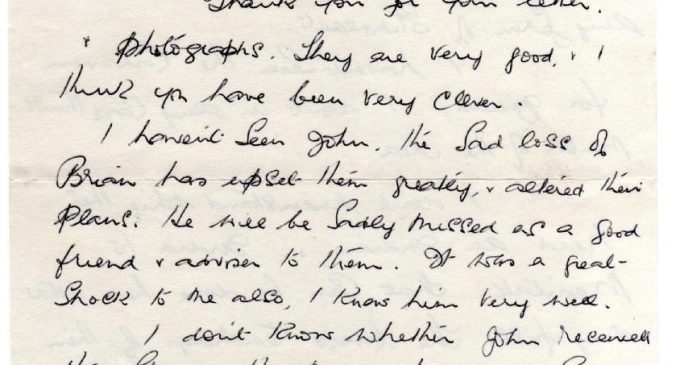 Thank you for your letter.
& photographs. They are very good, & I
think you have been very clever
I haven't seen John. The sad loss of
Brian has upset them greatly, & altered their
plans. He will be sadly missed as a good
friend & adviser to them. It was a great
shock to me also, I know him very well.
I don't know whether John received
the